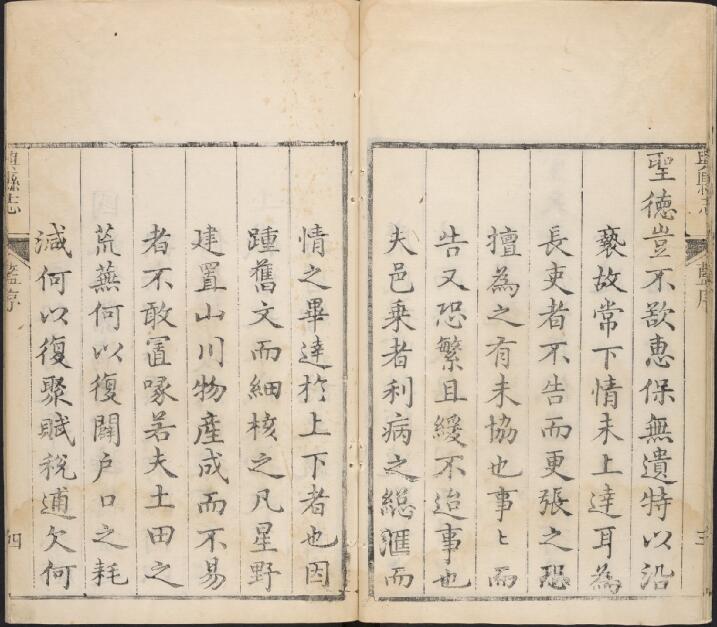 聖德豈不欲惠保無遺特以沿
褻故常下情未上達耳為
長吏者不告而更張之恐
擅為之有未協也事〻而
告又恐繁且緩不迨事也
夫邑乗者利病之總滙而
三
情之畢達扵上下者也因
踵舊文而細核之凡星野
建置山川物產成而不易
者不敢置喙若夫土田之
荒蕪何以復闢户口之耗
減何以復聚賦稅逋欠何
縣志
藍序
四